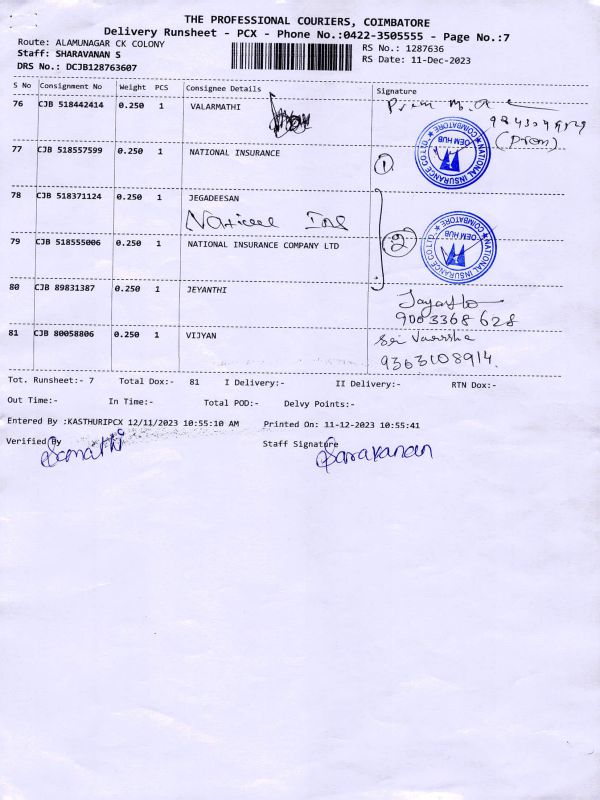 THE PROFESSIONAL COURIERS, COIMBATORE
Delivery Runsheet - PCX - Phone No.:0422-3505555 - Page No.:7
Route: ALAMUNAGAR CK COLONY
RS No.: 1287636
Staff: SHARAVANAN S
RS Date: 11-Dec-2023
DRS No.: DCJB128763607
S No Consignment No Weight PCS Consignee Details Signature
76 CJB 518442414 0.250 1 VALARMATHI
(Prem)
77 CJB 518557599 0.250 1 NATIONAL INSURANCE 1
NATIONAL INSURANCE CO LTD. ★ COIMBATORE ★
OEM HUB
78 CJB 518371124 0.250 1 JEGADEESAN
National Ins
79 CJB 518555006 0.250 1 NATIONAL INSURANCE COMPANY LTD 2
NATIONAL INSURANCE CO LTD. ★ COIMBATORE ★
OEM HUB
80 CJB 89831387 0.250 1 JEYANTHI
9003368628
81 CJB 80058806 0.250 1 VIJYAN
Sri Varsha
9363108914.
Tot. Runsheet:- 7 Total Dox:- 81 I Delivery:- II Delivery:- RTN Dox:-
Out Time:- In Time:- Total POD:- Delvy Points:-
Entered By :KASTHURIPCX 12/11/2023 10:55:10 AM Printed On: 11-12-2023 10:55:41
Verified By Staff Signature
Saravanan